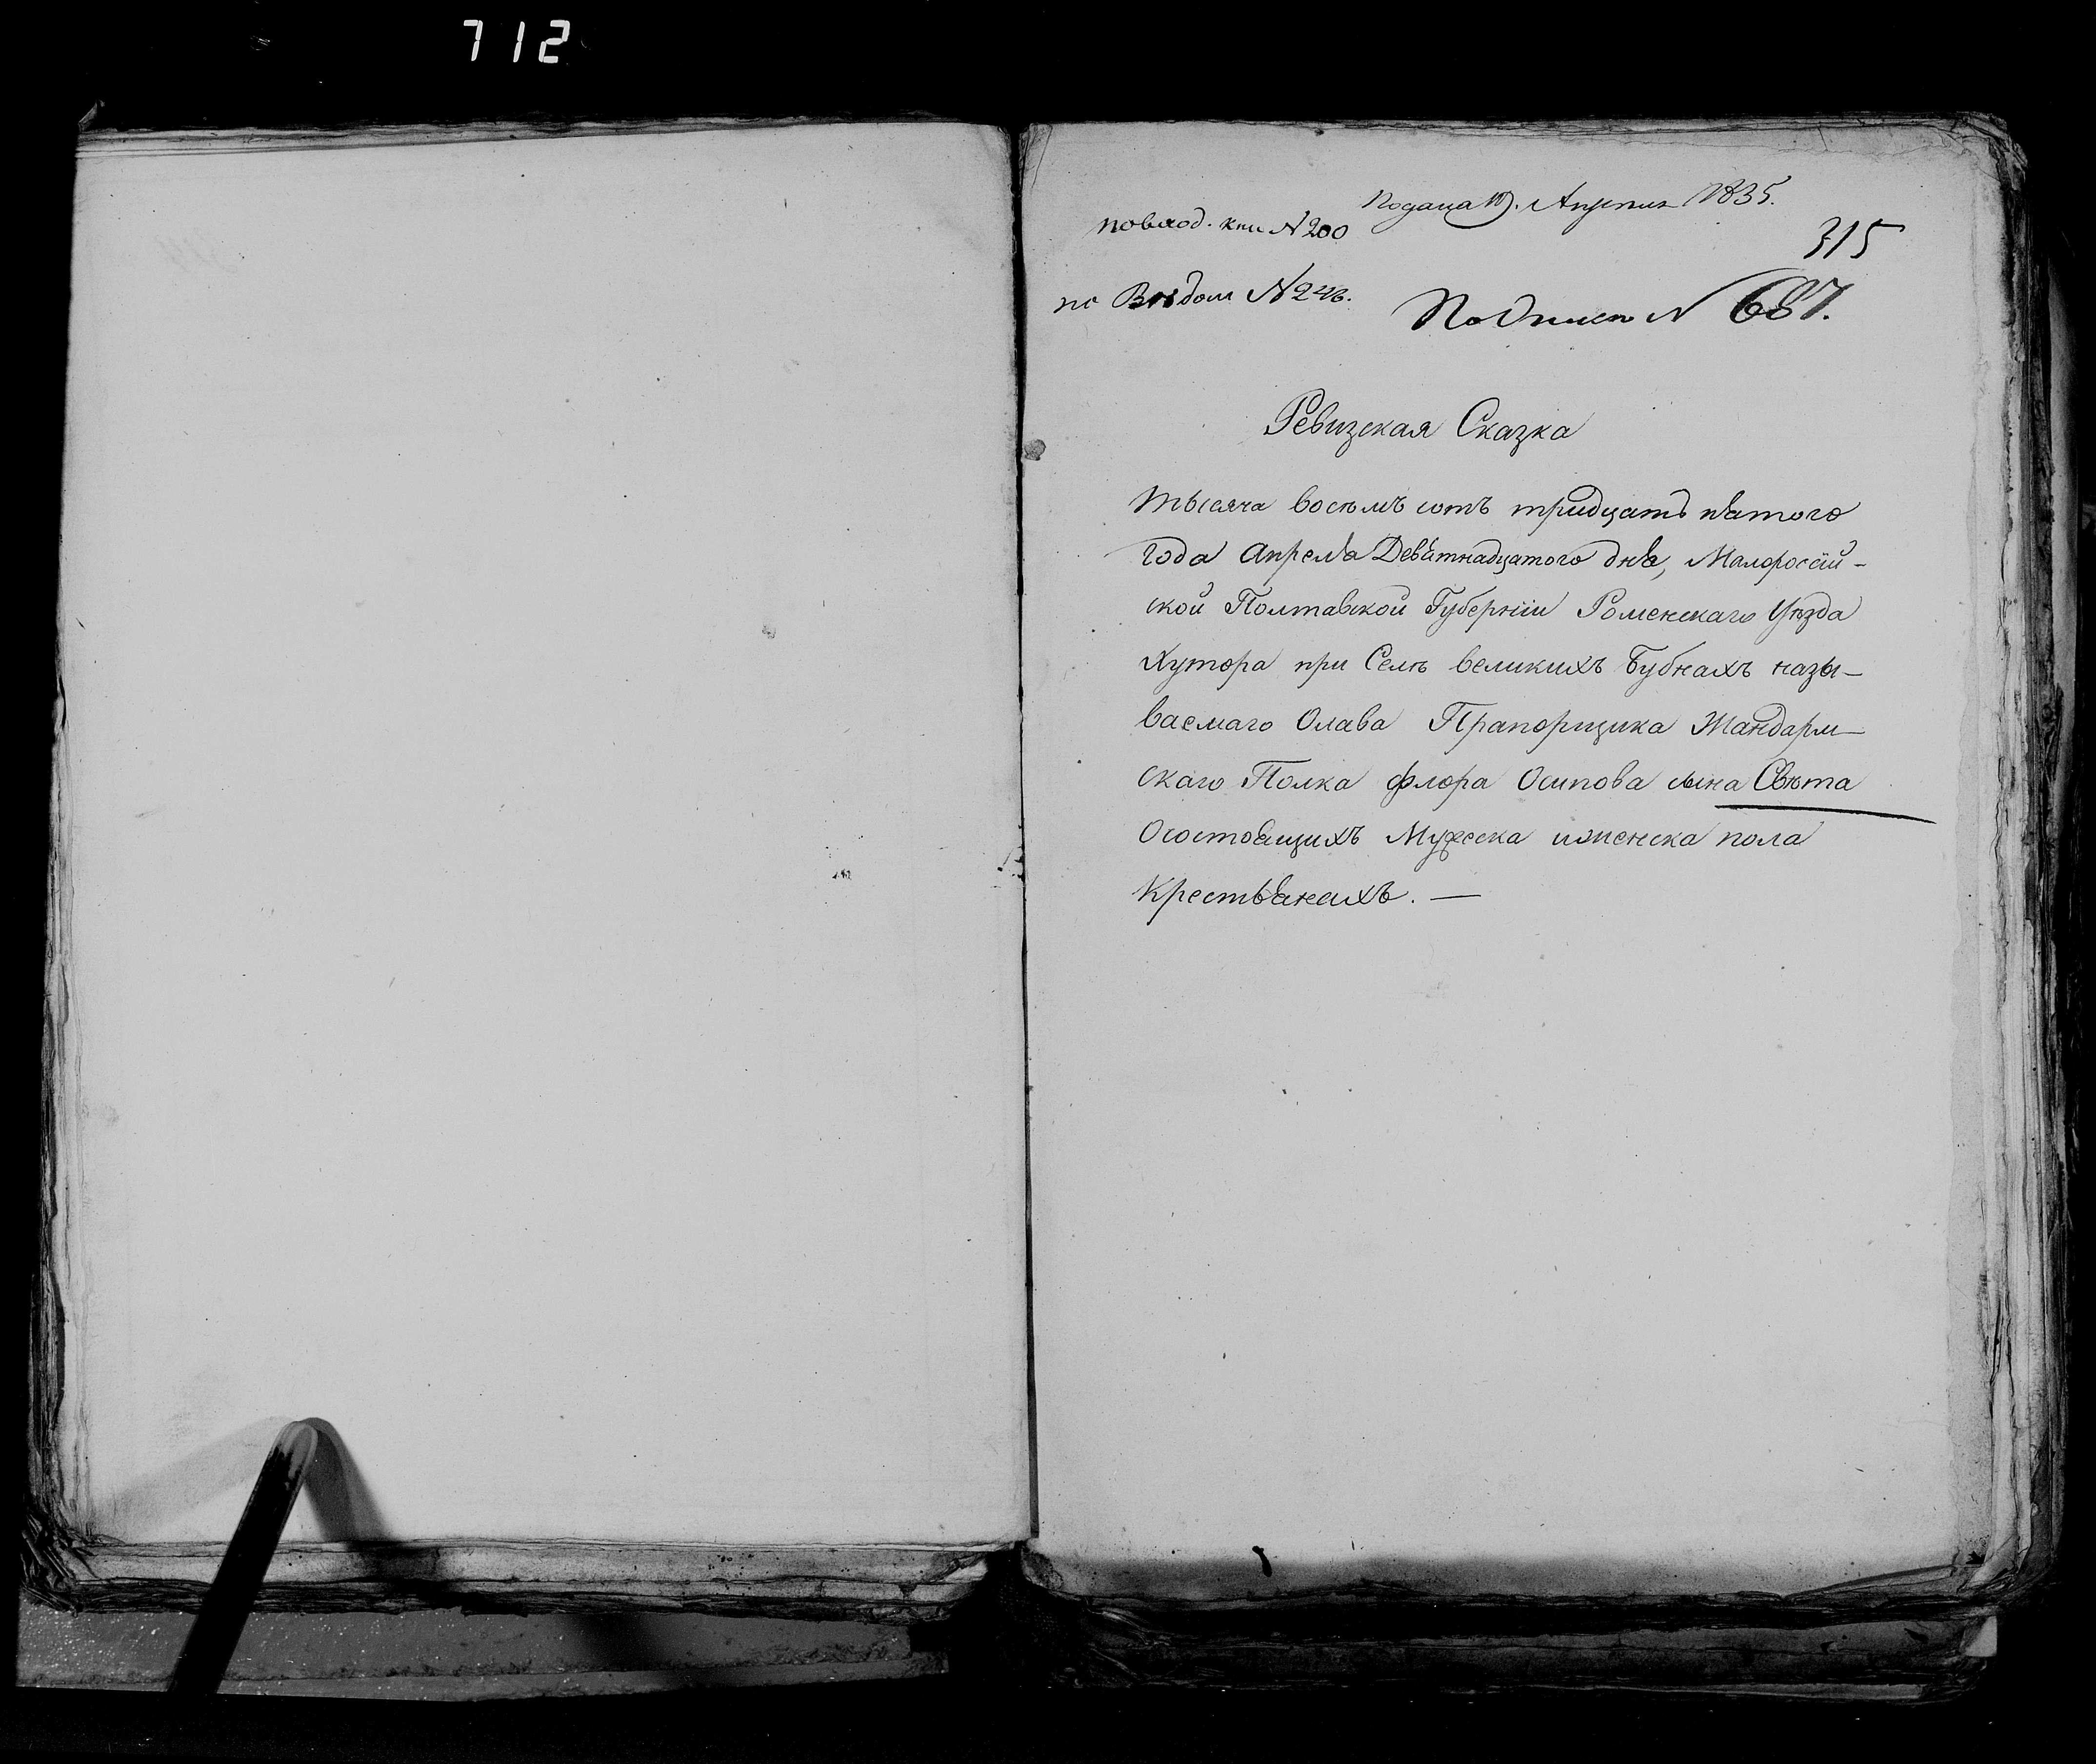 712
Подана 19. Апреля 1835.
повход. кни № 200
315
по Вѣдом № 242.
По Описи № 687.
Ревизская Сказка
тысяча восемъ сотъ тридцать пятого
года апреля Девятнадцатого дня, Малороссій-
ской Полтавской Губерніи Роменскаго Уѣзда
Хутора при Селѣ великихъ Бубнахъ назы-
ваемаго Олава Прапорщика Жандарм-
скаго Полка Флора Осипова сына Свѣта
Осостоящихъ Мужеска иженска пола
Крестьянахъ. —